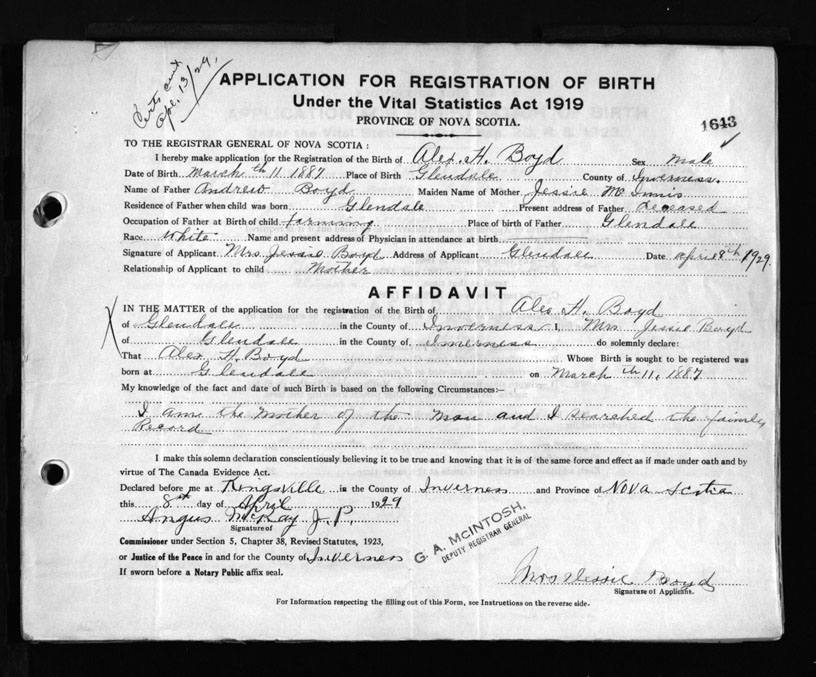 Certs sent
Apl. 13/29.
APPLICATION FOR REGISTRATION OF BIRTH
Under the Vital Statistics Act 1919
PROVINCE OF NOVA SCOTIA.
1643
TO THE REGISTRAR GENERAL OF NOVA SCOTIA :
I hereby make application for the Registration of the Birth of Alex. H. Boyd Sex male
Date of Birth March th 11 1887 Place of Birth Glendale County of Inverness.
Name of Father Andrew Boyd Maiden Name of Mother Jessie McInnis
Residence of Father when child was born Glendale Present address of Father Deceased
Occupation of Father at Birth of child farming Place of birth of Father Glendale
Race White Name and present address of Physician in attendance at birth
Signature of Applicant Mrs Jessie Boyd Address of Applicant Glendale Date April 8th 1929.
Relationship of Applicant to child Mother
AFFIDAVIT
IN THE MATTER of the application for the registration of the Birth of Alex H. Boyd
of Glendale in the County of Inverness I, Mrs Jessie Boyd
of Glendale in the County of Inverness do solemnly declare:
That Alex H. Boyd Whose Birth is sought to be registered was
born at Glendale on March th 11, 1887
My knowledge of the fact and date of such Birth is based on the following Circumstances:—
I am the mother of the man and I searched the family
Record
I make this solemn declaration conscientiously believing it to be true and knowing that it is of the same force and effect as if made under oath and by
virtue of The Canada Evidence Act.
Declared before me at Kingsville in the County of Inverness and Province of Nova Scotia
this 8th day of April 1929
Angus McKay J. P.
Signature of
Commissioner under Section 5, Chapter 38, Revised Statutes, 1923,
or Justice of the Peace in and for the County of Inverness
If sworn before a Notary Public affix seal.
G. A. McINTOSH,
DEPUTY REGISTRAR GENERAL
Mrs Jessie Boyd
Signature of Applicant.
For Information respecting the filling out of this Form, see Instructions on the reverse side.